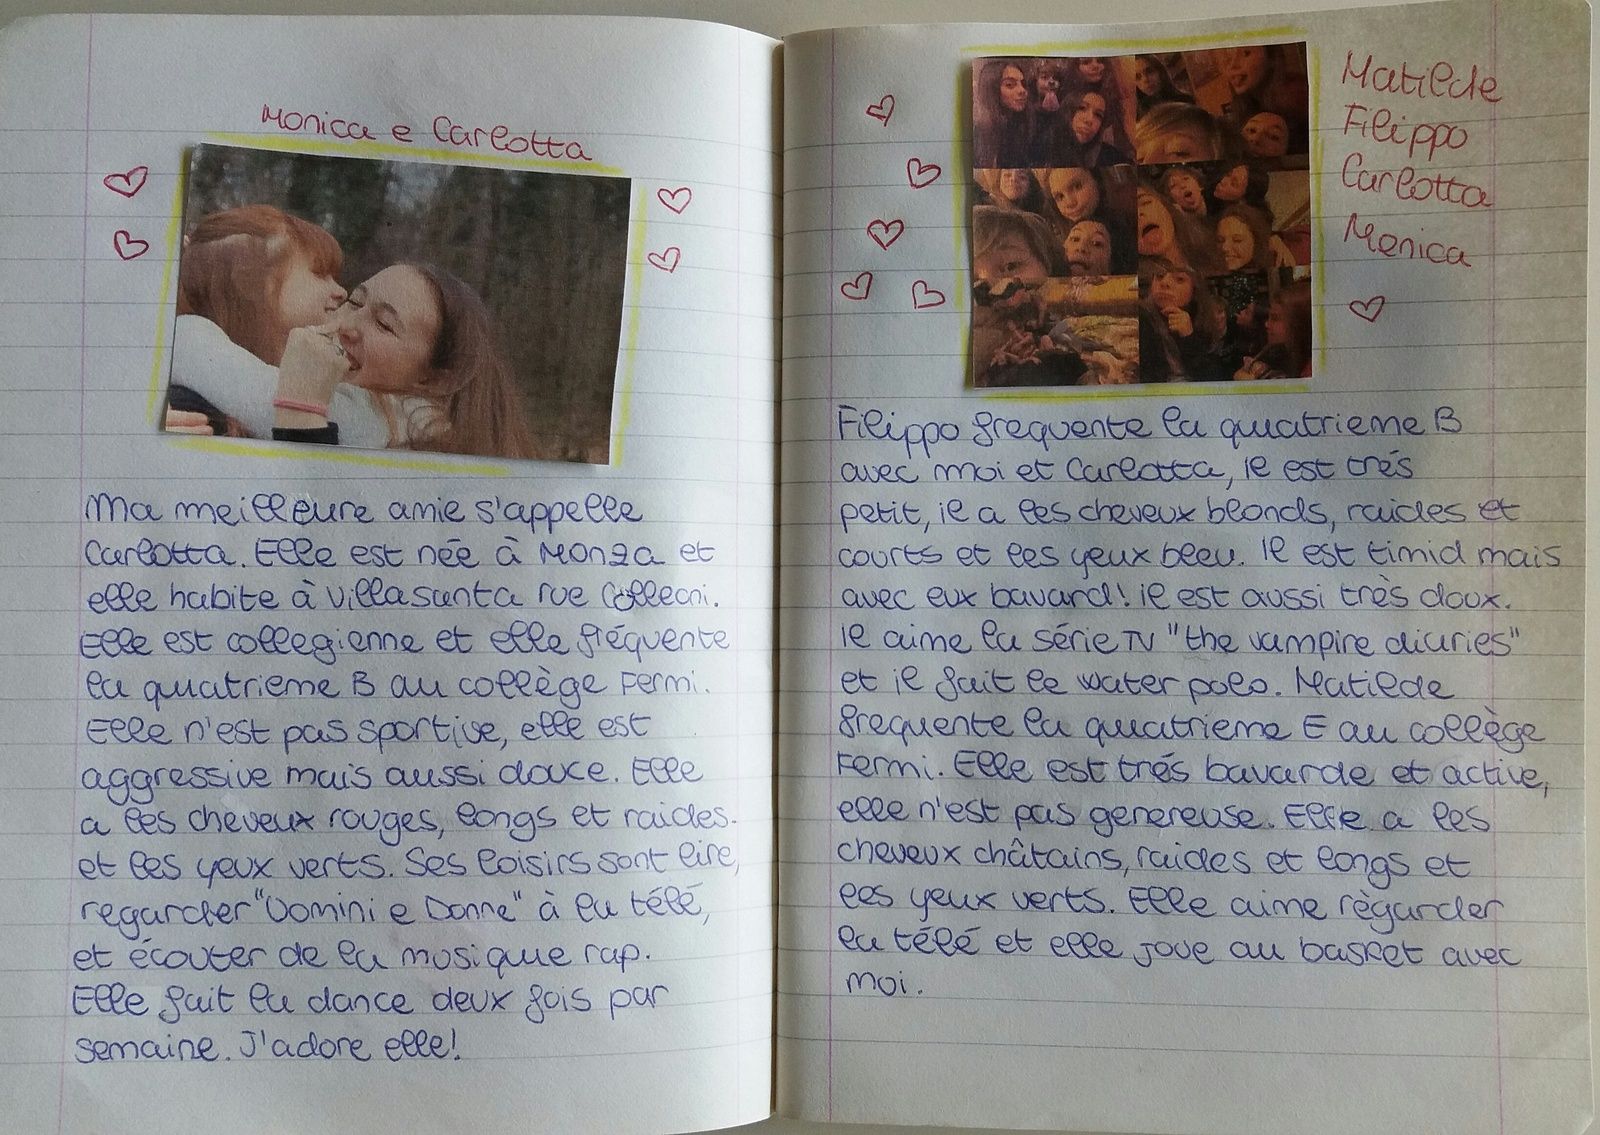 Monica e Carlotta
Ma meilleure amie s'appelle
Carlotta. Elle est née à Monza et
elle habite à Villasanta rue Colleoni.
Elle est collegienne et elle fréquente
la quatrieme B au collège Fermi.
Elle n'est pas sportive, elle est
aggressive mais aussi douce. Elle
a les cheveux rouges, longs et raides.
et les yeux verts. Ses loisirs sont lire,
regarder "Uomini e Donne" à la télé,
et écouter de la musique rap.
Elle fait la dance deux fois par
semaine. J'adore elle!
Matilde
Filippo
Carlotta
Monica
Filippo frequente la quatrieme B
avec moi et Carlotta, il est trés
petit, il a les cheveux blonds, raides et
courts et les yeux bleu. Il est timid mais
avec eux bavard! il est aussi très doux.
Il aime la série TV "the vampire diaries"
et il fait le water polo. Matilde
frequente la quatrieme E au collège
Fermi. Elle est trés bavarde et active,
elle n'est pas genereuse. Elle a les
cheveux châtains, raides et longs et
les yeux verts. Elle aime règarder
la télé et elle joue au basket avec
moi.